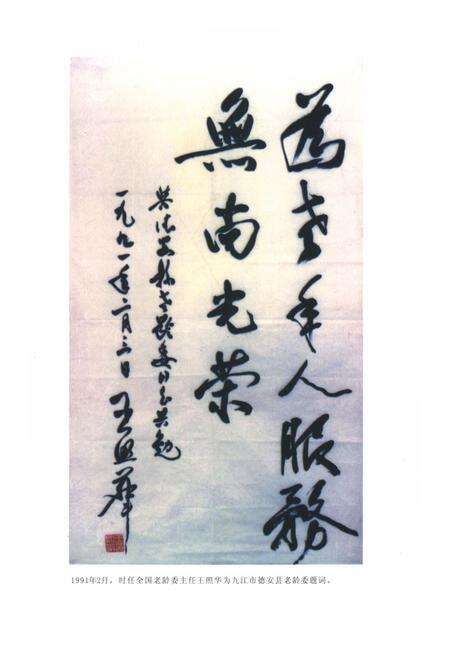 為老年人服務
無尚光荣
与德安县老龄委同志共勉
一九九一年二月三日 王照华
1991年2月，时任全国老龄委主任王照华为九江市德安县老龄委题词。